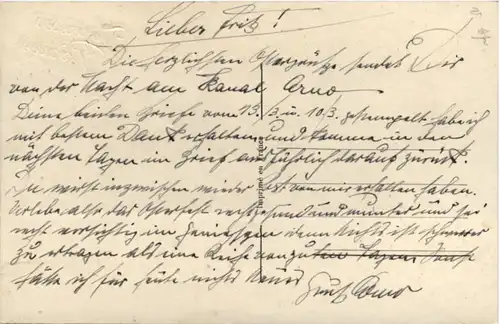 Lieber Fritz!
Die herzlichsten Ostergrüße sendet Dir
von der Wacht am Kanal Arno
Deine beiden Briefe vom 13./3. u. 10./3. gestempelt habe ich
mit bestem Dank erhalten und komme in den
nächsten Tagen im Brief ausführlich darauf zurück.
Du wirst inzwischen wieder Post von mir erhalten haben.
Verlebe also das Osterfest recht gesund und munter und sei
recht vorsichtig im Geniessen denn Nichts ist schwerer
zu ertragen als eine Reihe von guten Tagen. Sonst
hätte ich für heute nichts Neues
Gruß Arno
Imprimé en